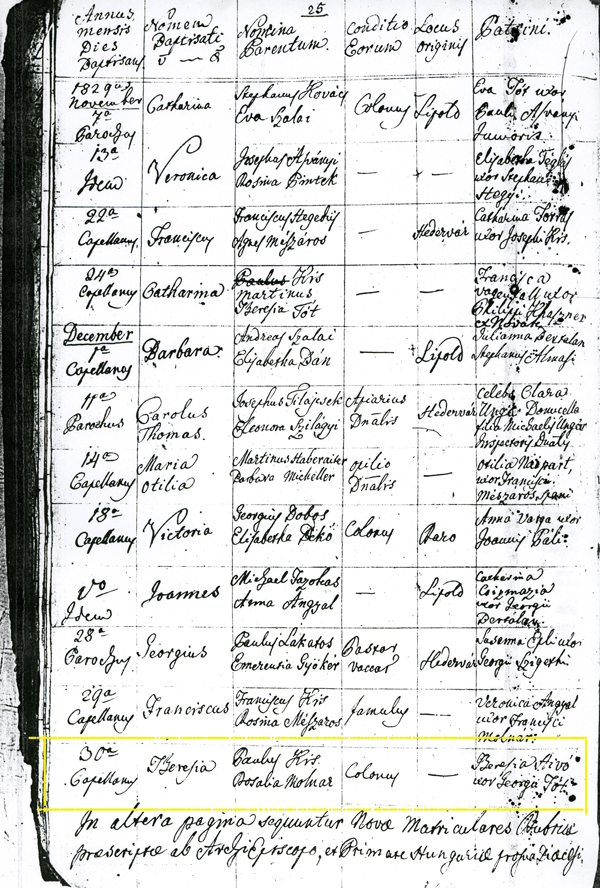 25
Annus mensis Dies Baptisans | Nomen Baptisati | Nomina Parentum | Conditio Eorum | Locus originis | Patrini.
1829a November 7a Parochus | Catharina | Stephanus Kovács Eva Szalai | Colonus | Lipold | Eva Tót uxor Pauli Asványi Junioris.
13a Idem | Veronica | Josephus Asványi Rosina Pintek | — | — | Elisabetha uxor Stephani Hegyi
22a Capellanus | Franciscus | Franciscus Hegedüs Agnes Mészaros | — | Hédervár | Catharina uxor Josephi Kis.
24a Capellanus | Catharina | Paulus Kis Martinus Theresia Tót | — | — | Francisca uxor Philippi ex Novák
December 1a Capellanus | Barbara. | Andreas Szalai Elisabetha Dán | — | Lipold | Julianna Bertalan Stephanus Almasi
11a Parochus | Carolus Thomas. | Josephus Filajcsek Eleonora Szilágyi | Apiarius Dnalis | Hedervár | Celebs Clara Ungár Domicella filia Michaelis Ungár Inspectoris Dnalis
14a Capellanus | Maria Otilia | Martinus Haberaiter Barbara Micheller | opilio Dnalis | — | Otilia uxor Francisci Mészáros,
18a Capellanus | Victoria | Georgius Dobos Elisabetha Pekó | Colonus | Raro | Anna Varga uxor Joannis Páli.
Idem | Joannes | Michael Anna Angyal | — | Lipold | Catharina Csizmazia uxor Georgii Bertalan
28a Parochus | Georgius | Paulus Lakatos Emerentia Gyökér | Pastor vaccar | Hedervár | Susanna uxor Georgii Szigethi
29a Capellanus | Franciscus | Franciscus Kis Rosina Mészaros | famulus | — | Veronica Angyal uxor Francisci Molnár.
30a Capellanus | Theresia | Paulus Kis Rosalia Molnar | Colonus | — | Theresia Hivó uxor Georgii Tót.
In altera pagina sequuntur Novæ Matriculares Rubricæ
præscriptæ ab Archi Episcopo, et Primate Hungariæ propria Diœcesi,